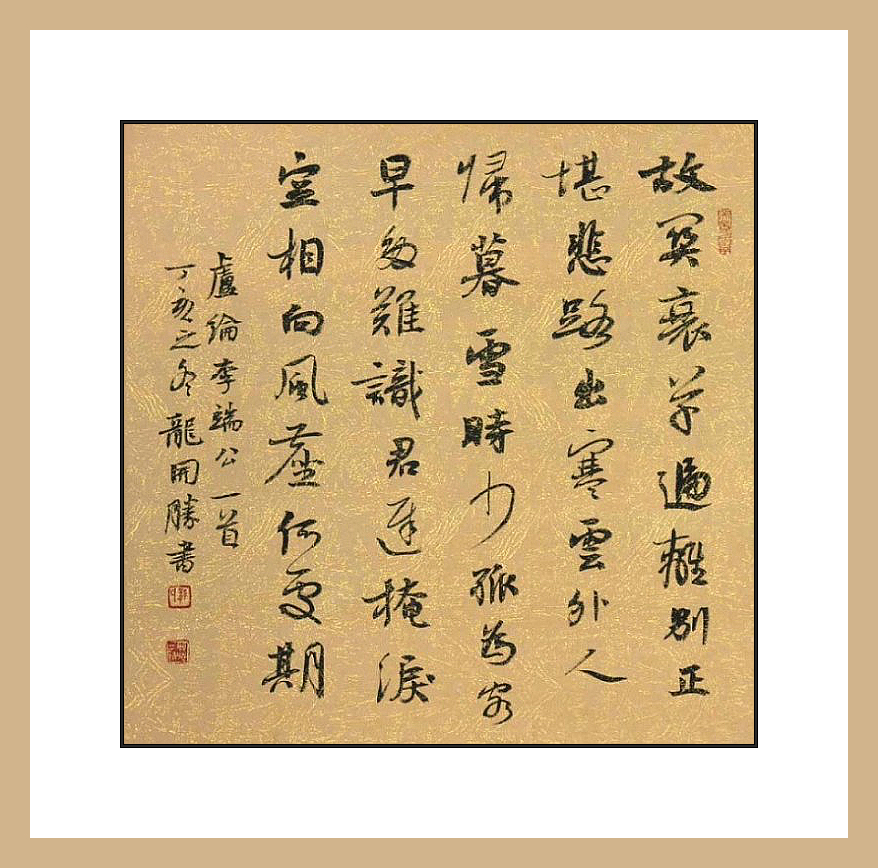 故關衰草遍離別正
堪悲路出寒雲外人
歸暮雪時少孤為客
早多難識君遲掩淚
空相向風塵何處期
盧綸李端公一首
丁亥之冬龍開勝書